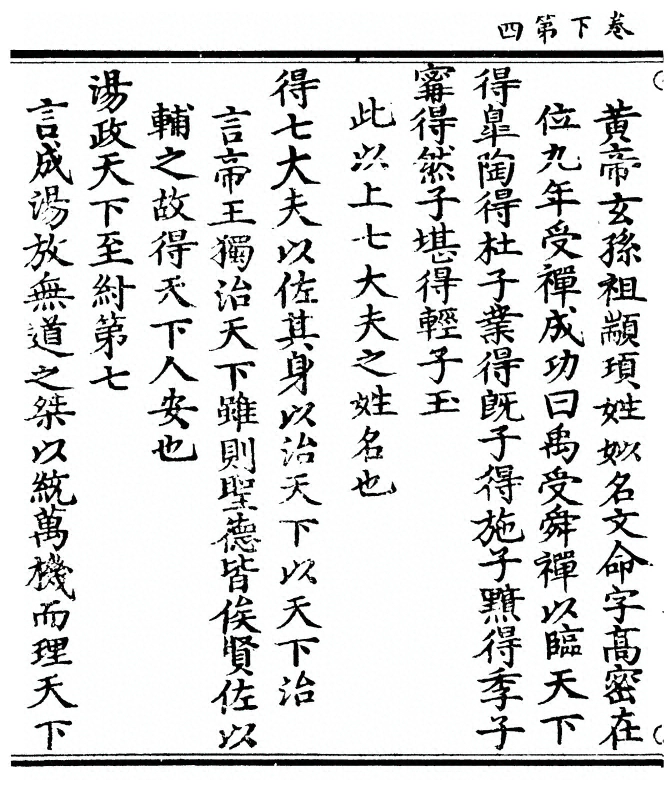 卷下第四
黃帝玄孫祖顓頊姓姒名文命字高密在
位九年受禪成功曰禹受舜禪以臨天下
得皐陶得杜子業得旣子得施子黯得季子
甯得然子堪得輕子玉
此以上七大夫之姓名也
得七大夫以佐其身以治天下以天下治
言帝王獨治天下雖則聖德皆俟賢佐以
輔之故得天下人安也
湯政天下至紂第七
言成湯放無道之桀以統萬機而理天下